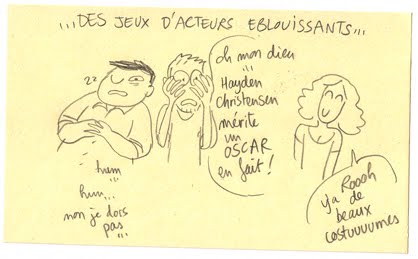 ,,,DES JEUX D'ACTEURS EBLOUISSANTS,,,
zz
hum
,,,
hum,,,
non je dors
pas,,,
oh mon dieu
,,,
Hayden
Christensen
mérite
un
OSCAR
en fait !
Roooh
y'a de
beaux
costuuuumes